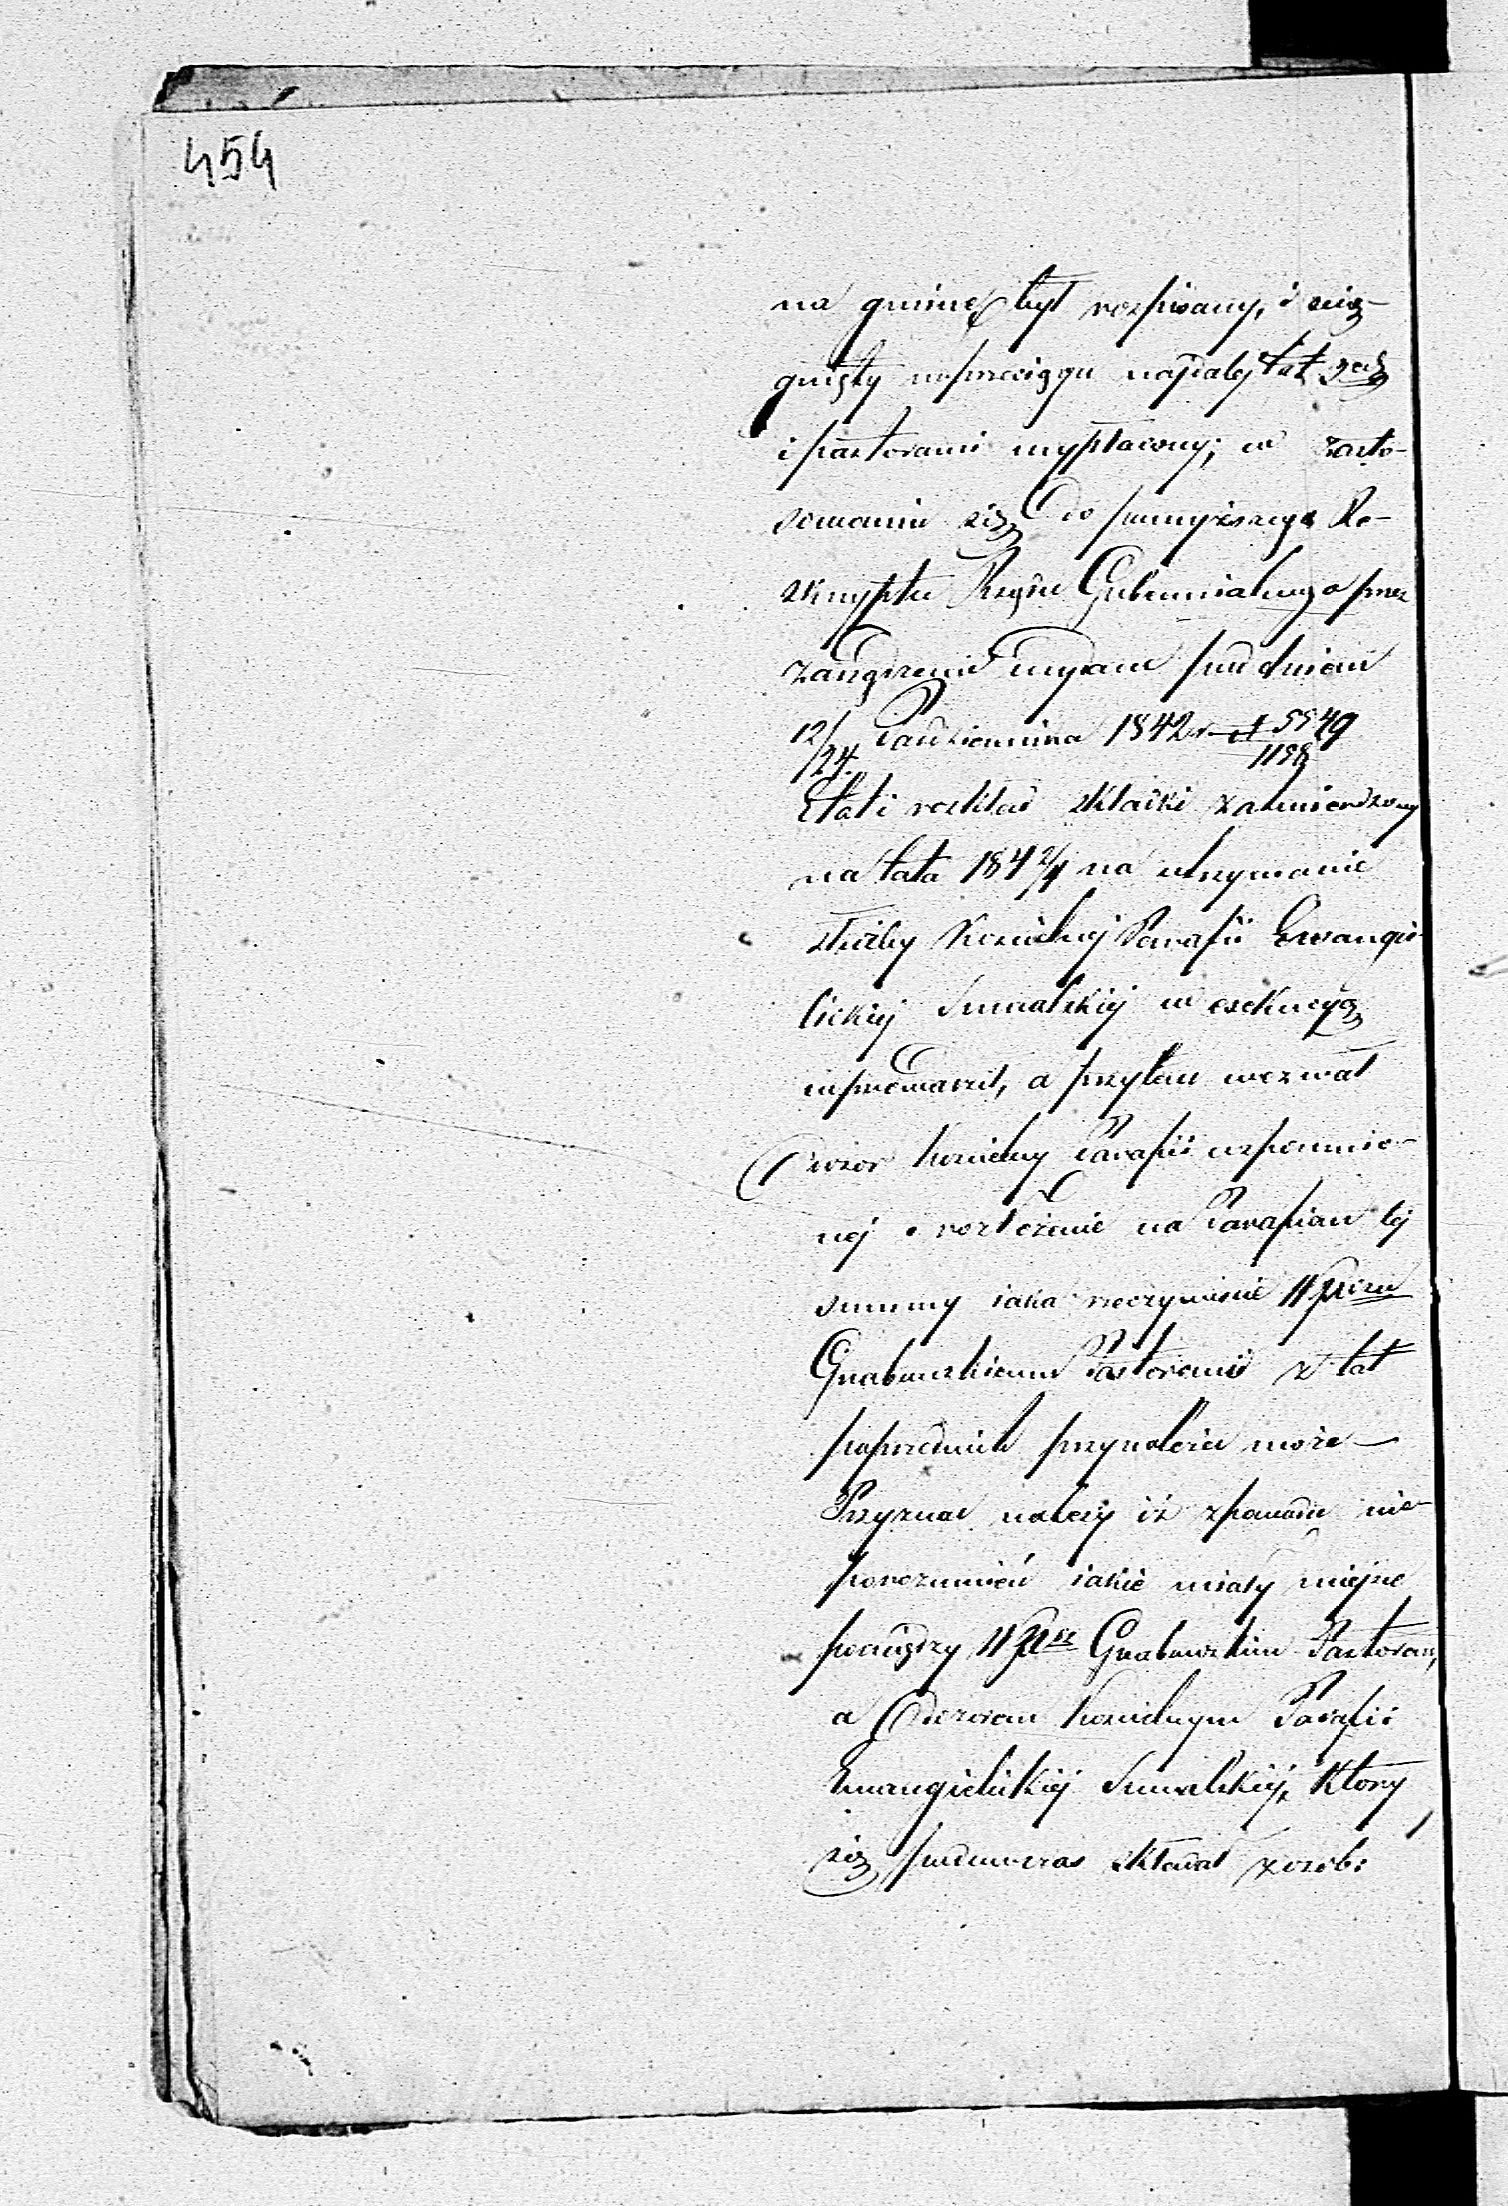 454
na gminę był rozpisany, i ścią-
gnięty w przeciągu najdalej lat 2ch
i pastorowi wypłacony; w zasto-
sowaniu się do powyższego Re-
skryptu Rządu Gubernialnego przez
zarządzenie wydane pod dniem
12/24 Października 1842 r. N 5549/1158
Etat i rozkład składki zatwierdzony
na lata 184 2/4 na utrzymanie
służby Kościelnej Parafii Ewangie-
lickiej Suwalskiej w exekucyą
wprowadził, a przytem wezwał
Dozor kościelny Parafii wspomnio-
nej o rozłożenie na Parafian tej
summy iaka rzeczywiście
Grabowskiemu Pastorowi z lat
poprzednich przynależeć może —
Przyznać należy iż z powodu nie-
porozumień iakie miały miejsce
pomiędzy Grabowskim Pastorem,
a Dozorem kościelnym Parafii
Ewangielickiej Suwalskiej, który
się podówczas składał z osób: